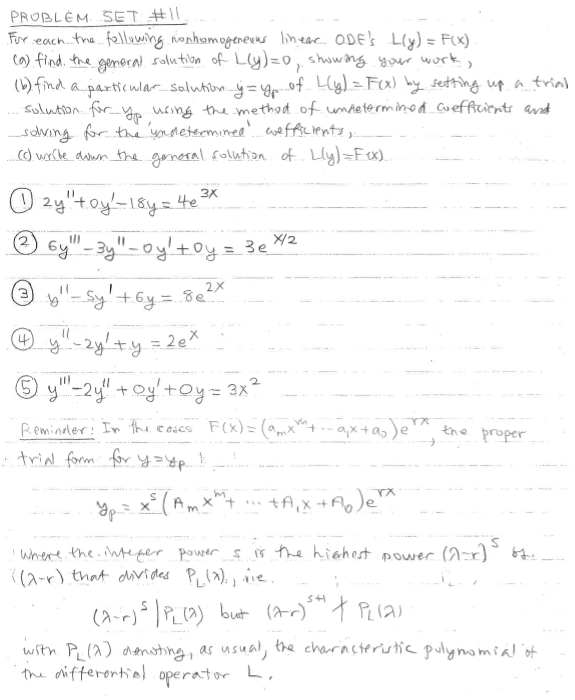 PROBLEM SET #11
For each the following nonhomogeneous linear ODE's L(y) = F(x)
(a) find the general solution of L(y)=0, showing your work,
(b) find a particular solution y=yₚ of L(y)=F(x) by setting up a trial
solution for yₚ using the method of undetermined coefficients and
solving for the 'undetermined' coefficients,
(c) write down the general solution of L(y)=F(x).
① 2y''+0y'-18y = 4e^{3x}
② 6y'''-3y''-0y'+0y = 3e^{x/2}
③ y''-5y'+6y = 8e^{2x}
④ y''-2y'+y = 2e^x
⑤ y'''-2y''+0y'+0y = 3x²
Reminder: In the cases F(x)=(a_m x^m+...a₁x+a₀)e^{rx}, the proper
trial form for y=yₚ :
yₚ = x^s(A_m x^m+ ... +A₁x+A₀)e^{rx}
where the integer power s is the highest power (λ-r)^s of
(λ-r) that divides P_L(λ), i.e.
(λ-r)^s | P_L(λ) but (λ-r)^{s+1} ∤ P_L(λ)
with P_L(λ) denoting, as usual, the characteristic polynomial of
the differential operator L.